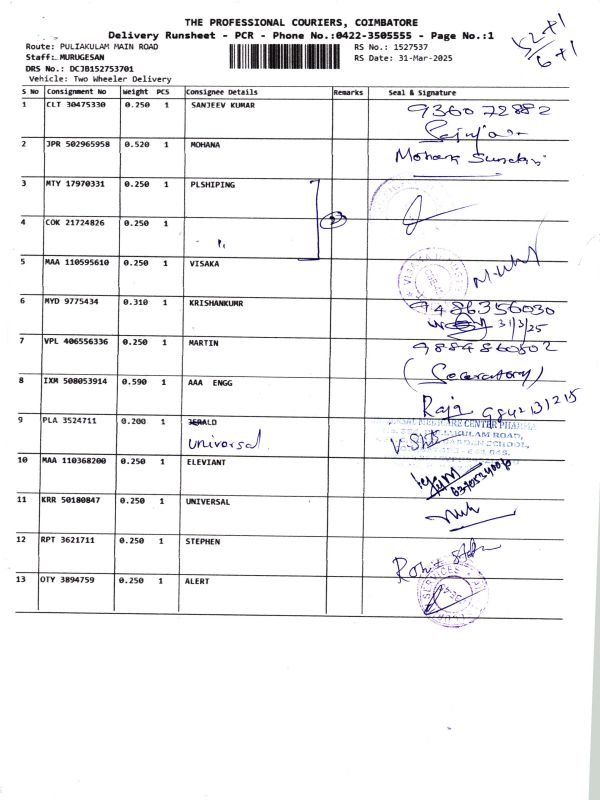 THE PROFESSIONAL COURIERS, COIMBATORE
Delivery Runsheet - PCR - Phone No.:0422-3505555 - Page No.:1
52+1
6+1
Route: PULIAKULAM MAIN ROAD
RS No.: 1527537
Staff: MURUGESAN
RS Date: 31-Mar-2025
DRS No.: DCJB152753701
Vehicle: Two Wheeler Delivery
S No Consignment No Weight PCS Consignee Details Remarks Seal & Signature
1 CLT 30475330 0.250 1 SANJEEV KUMAR 9360 72882
2 JPR 502965958 0.520 1 MOHANA Mohana
3 MTY 17970331 0.250 1 PLSHIPING
4 COK 21724826 0.250 1 "
5 MAA 110595610 0.250 1 VISAKA
6 MYD 9775434 0.310 1 KRISHANKUMR 9486356030
31/3/25
7 VPL 406556336 0.250 1 MARTIN 9884860502
8 IXM 508053914 0.590 1 AAA ENGG Raja 9842131215
9 PLA 3524711 0.200 1 JERALD
universal
MEDICARE CENTER PHARMA
ROAD,
SCHOOL,
10 MAA 110368200 0.250 1 ELEVIANT
11 KRR 50180847 0.250 1 UNIVERSAL
12 RPT 3621711 0.250 1 STEPHEN
13 OTY 3894759 0.250 1 ALERT